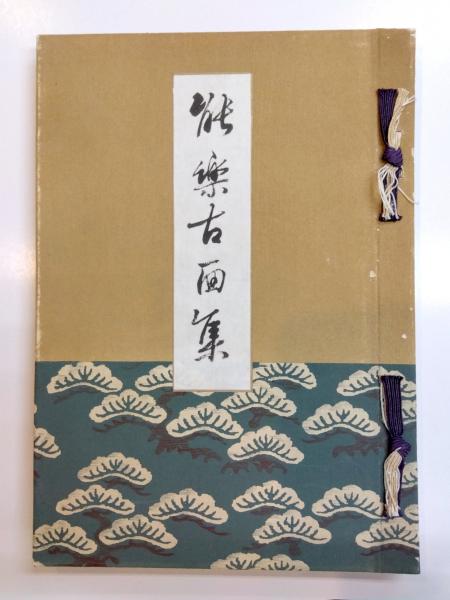 能樂古画集